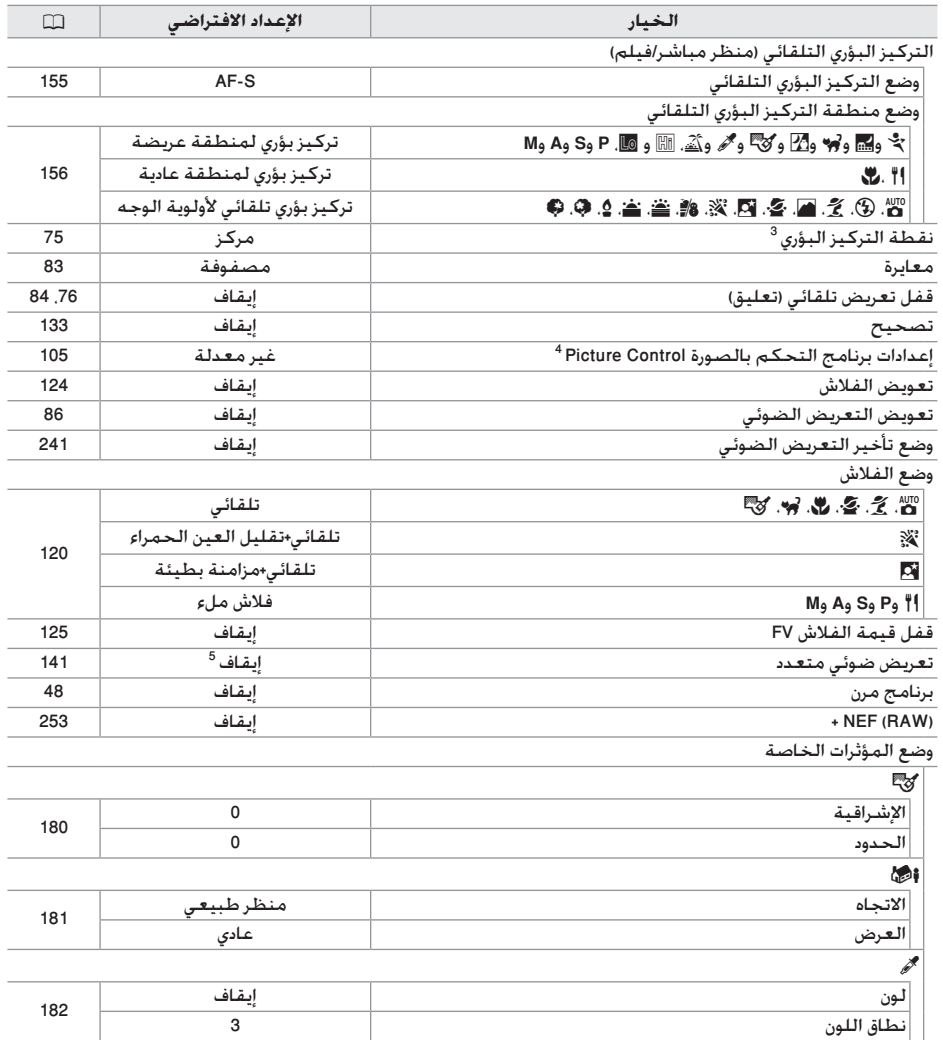 الخيار الإعداد الافتراضي
التركيز البؤري التلقائي (منظر مباشر/فيلم)
وضع التركيز البؤري التلقائي AF-S 155
وضع منطقة التركيز البؤري التلقائي
و و و و و و، و Hi و Lo، P وS وA وM تركيز بؤري لمنطقة عريضة
156
تركيز بؤري لمنطقة عادية
AUTO تركيز بؤري تلقائي لأولوية الوجه
نقطة التركيز البؤري 3 مركز 75
معايرة مصفوفة 83
قفل تعريض تلقائي (تعليق) إيقاف 76، 84
تصحيح إيقاف 133
إعدادات برنامج التحكم بالصورة Picture Control 4 غير معدلة 105
تعويض الفلاش إيقاف 124
تعويض التعريض الضوئي إيقاف 86
وضع تأخير التعريض الضوئي إيقاف 241
وضع الفلاش
AUTO تلقائي
تلقائي+تقليل العين الحمراء
120
تلقائي+مزامنة بطيئة
وP وS وA وM فلاش ملء
قفل قيمة الفلاش FV إيقاف 125
تعريض ضوئي متعدد إيقاف 5 141
برنامج مرن إيقاف 48
+ NEF (RAW) إيقاف 253
وضع المؤثرات الخاصة
الإشراقية 0
180
الحدود 0
الاتجاه منظر طبيعي
181
العرض عادي
لون إيقاف
182
نطاق اللون 3